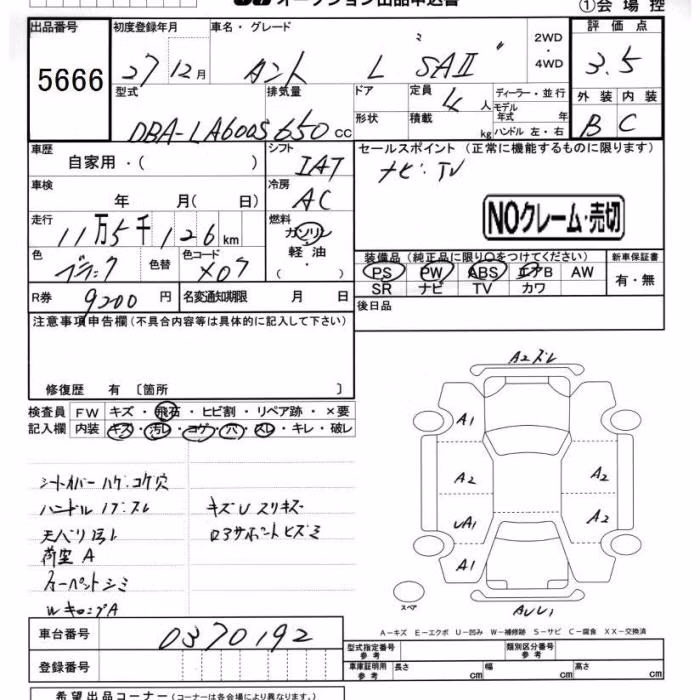 オークション出品申込書
①会場控
出品番号 初度登録年月 車名・グレード 2WD ・ 4WD 評価点
5666 27 12月 タント L SAⅡ 3.5
型式 排気量 ドア 定員 ディーラー・並行 外装 内装
DBA-LA600S 650cc 4人 モデル年式 年 B C
形状 積載 kg ハンドル 左・右
車歴 シフト セールスポイント (正常に機能するものに限ります)
自家用・( ) IAT ナビ・TV
車検 冷房
年 月( 日) AC NOクレーム・売切
走行 燃料
11万5千126km ガソリン
色 色替 色コード 軽油 装備品(純正品に限り○をつけてください) 新車保証書
ブラック X07 ・ ( ) PS PW ABS エアB AW 有・無
R券 名変通知期限 SR ナビ TV カワ
9200円 月 日 後日品
注意事項申告欄(不具合内容等は具体的に記入して下さい)
修復歴 有 〔箇所 〕
検査員 FW キズ・飛石・ヒビ割・リペア跡・×要
記入欄 内装 キズ・汚レ・コゲ・穴・スレ・キレ・破レ
シートカバー ハゲ・コゲ穴
ハンドル ノブ スレ キズU スリキズ
天バリ 汚レ ロアサポート ヒズミ
荷室 A
カーペット シミ
A2 スレ
A1
A2 A2
UA1 A2
A1
スペア
AUU1
A－キズ E－エクボ U－凹み W－補修跡 S－サビ C－腐食 XX－交換済
車台番号 0370192 型式指定番号 参考 類別区分番号 参考
登録番号 車庫証明用 参考 長さ cm 幅 cm 高さ cm
希望出品コーナー(コーナーは各会場により異なります。)